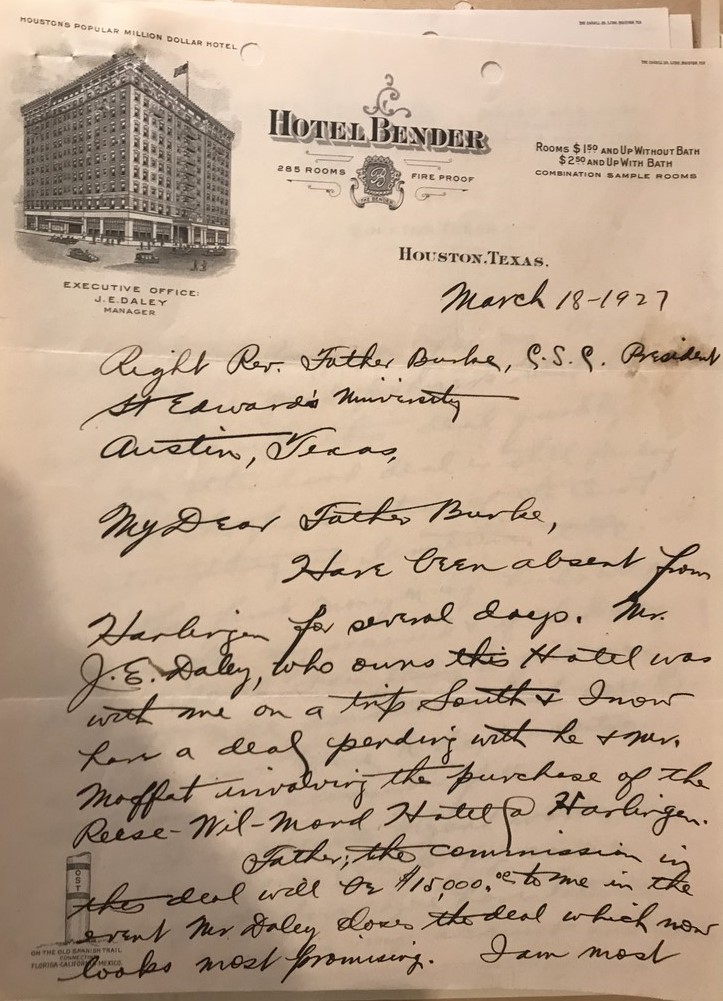 HOUSTON'S POPULAR MILLION DOLLAR HOTEL
HOTEL BENDER
285 ROOMS FIRE PROOF
B
THE BENDER
ROOMS $1.50 AND UP WITHOUT BATH
$2.50 AND UP WITH BATH
COMBINATION SAMPLE ROOMS
HOUSTON, TEXAS.
EXECUTIVE OFFICE:
J.E. DALEY
MANAGER
March 18-1927
Right Rev. Father Burke, C.S.C. President
St Edward's University
Austin, Texas,
My Dear Father Burke,
Have been absent from
Harlingen for several days. Mr.
J.E. Daley, who owns this Hotel was
with me on a trip South & I now
have a deal pending with he & Mr.
Moffat involving the purchase of the
Reese-Wil-Mond Hotel @ Harlingen.
Father, the commission in
this deal will be $15,000.00 to me in the
event Mr Daley closes the deal which now
looks most promising. I am most
OST
ON THE OLD SPANISH TRAIL
CONNECTING
FLORIDA-CALIFORNIA-MEXICO